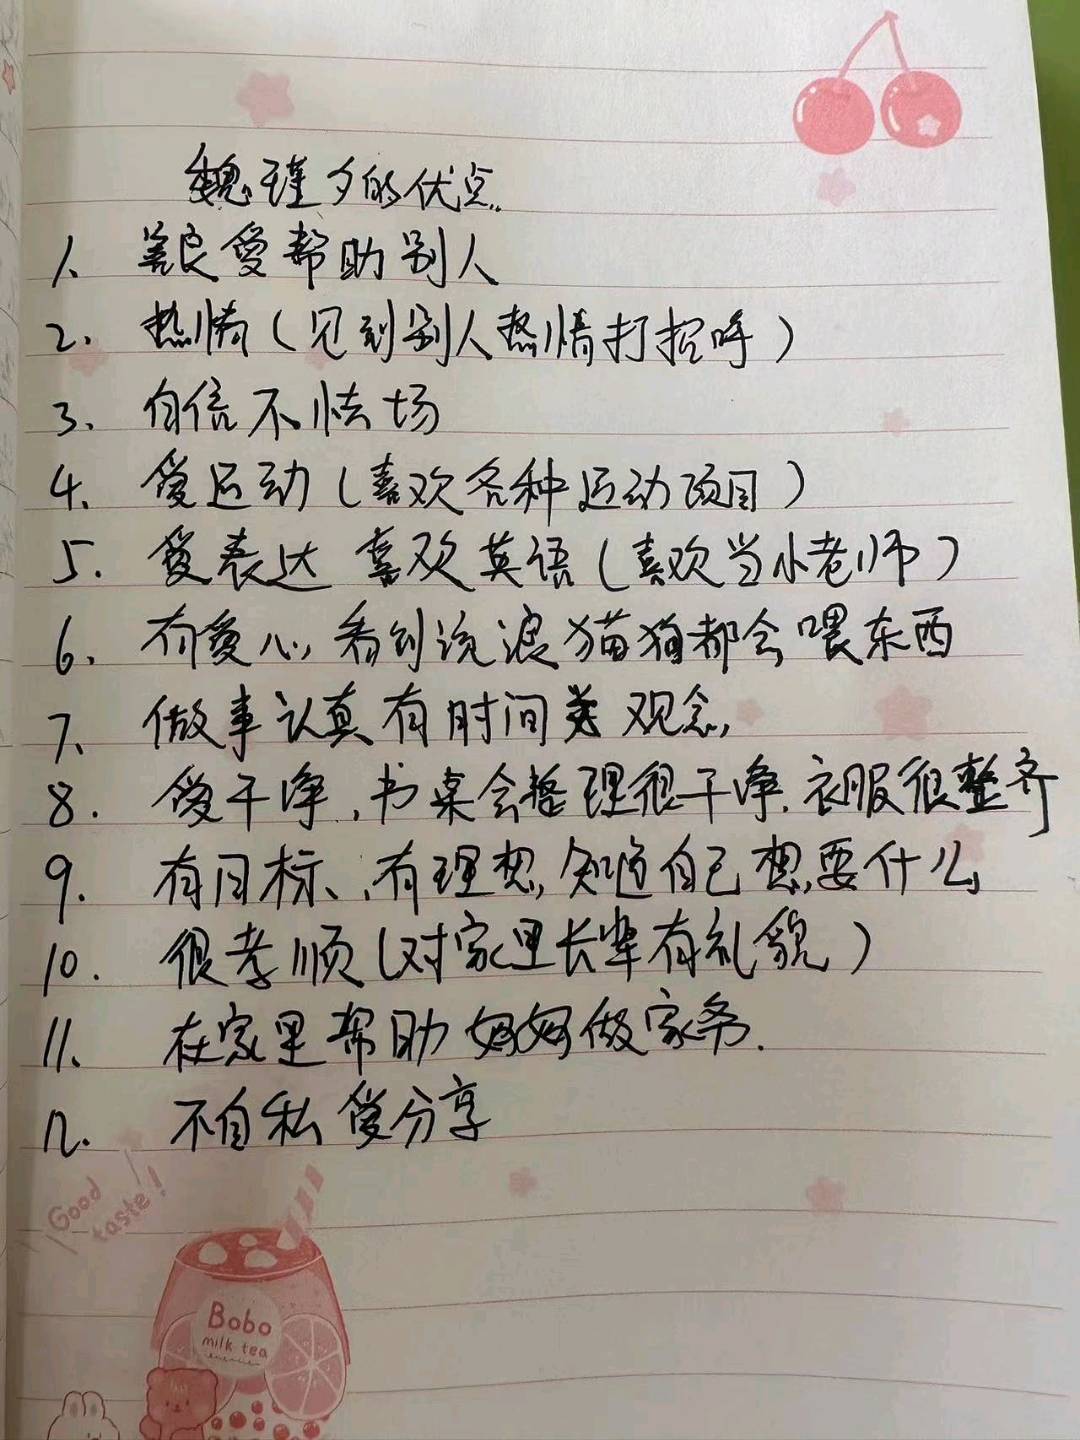 魏瑾夕的优点
1、善良爱帮助别人
2、热情(见到别人热情打招呼)
3、自信不怯场
4、爱运动(喜欢各种运动项目)
5、爱表达 喜欢英语(喜欢当小老师)
6、有爱心,看到流浪猫狗都会喂东西
7、做事认真有时间观念,
8、爱干净,书桌会整理很干净.衣服很整齐
9、有目标、有理想,知道自己想要什么
10、很孝顺(对家里长辈有礼貌)
11、在家里帮助妈妈做家务.
12、不自私爱分享
Good
taste!
Bobo
milk tea